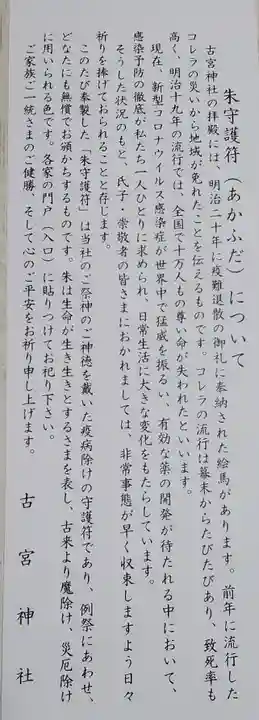 朱守護符(あかふだ)について
古宮神社の拝殿には、明治二十年に疫難退散の御礼に奉納された絵馬があります。前年に流行した
コレラの災いから地域が免れたことを伝えるものです。コレラの流行は幕末からたびたびあり、致死率も
高く、明治十九年の流行では、全国で十万人もの尊い命が失われたといいます。
現在、新型コロナウイルス感染症が世界中で猛威を振るい、有効な薬の開発が待たれる中において、
感染予防の徹底が私たち一人ひとりに求められ、日常生活に大きな変化をもたらしています。
そうした状況のもと、氏子・崇敬者の皆さまにおかれましては、非常事態が早く収束しますよう日々
祈りを捧げておられることと存じます。
このたび奉製した「朱守護符」は当社のご祭神のご神徳を戴いた疫病除けの守護符であり、例祭にあわせ、
どなたにも無償でお頒かちするものです。朱は生命が生き生きとするさまを表し、古来より魔除け、災厄除け
に用いられる色です。各家の門戸(入口)に貼りつけてお祀り下さい。
ご家族ご一統さまのご健勝、そして心のご平安をお祈り申し上げます。
古宮神社